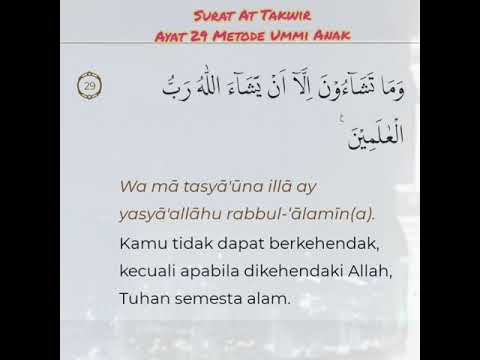 Surat At Takwir
Ayat 29 Metode Ummi Anak
29
وَمَا تَشَاۤءُوْنَ اِلَّآ اَنْ يَّشَاۤءَ اللّٰهُ رَبُّ
الْعٰلَمِيْنَ ࣖ
Wa mā tasyā'ūna illā ay
yasyā'allāhu rabbul-‘ālamīn(a).
Kamu tidak dapat berkehendak,
kecuali apabila dikehendaki Allah,
Tuhan semesta alam.